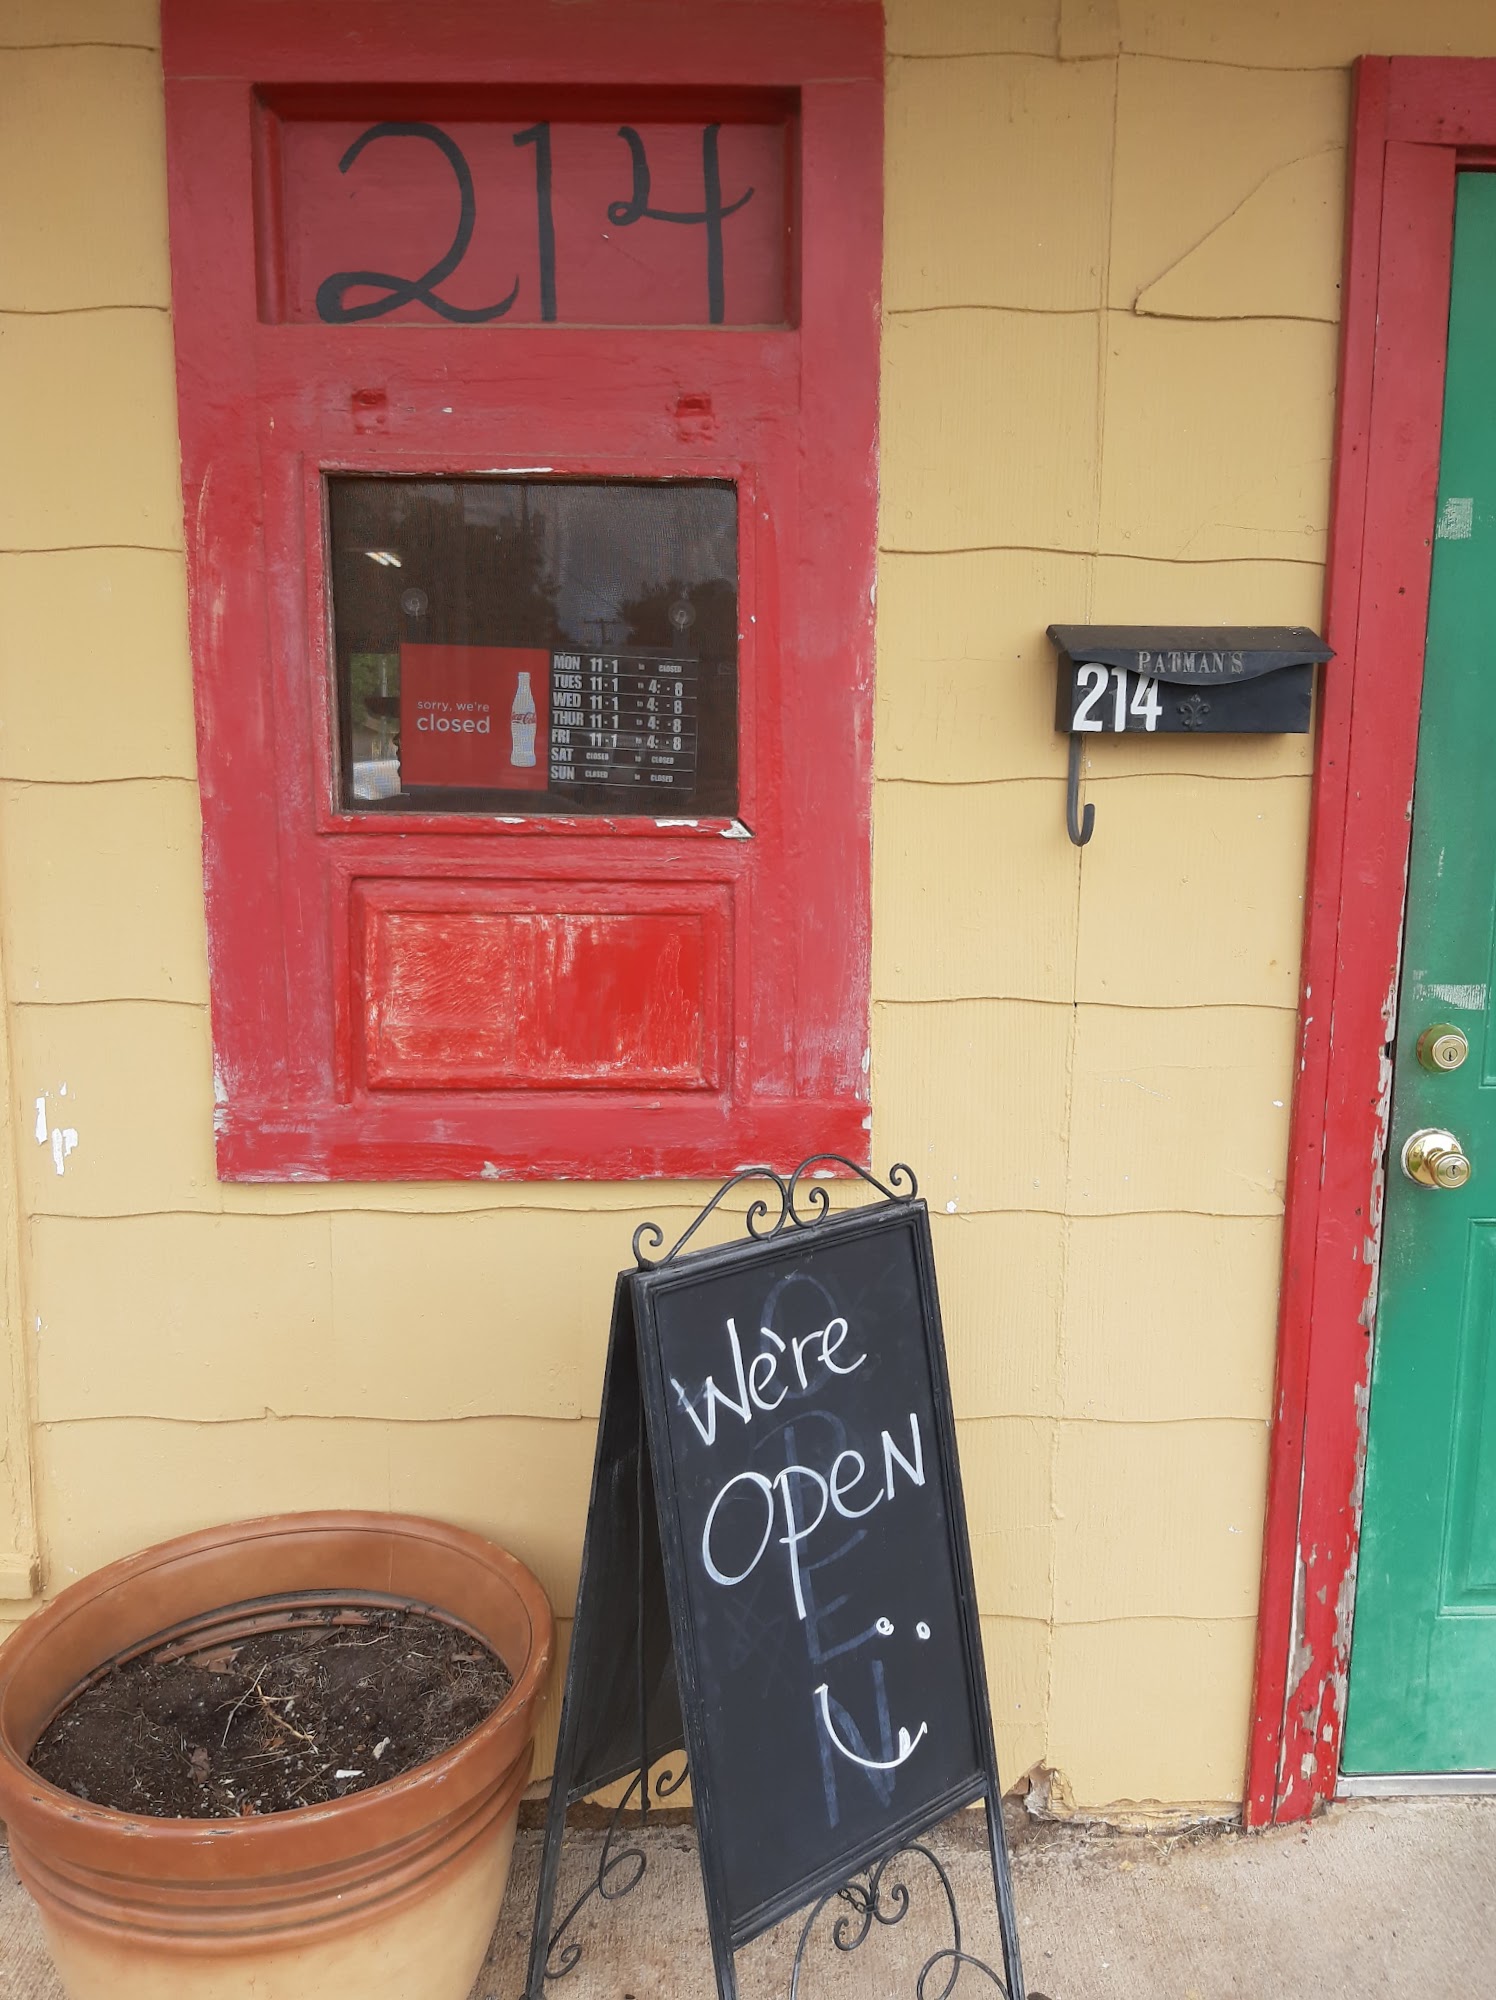 214
sorry, we're
closed
MON 11 - 1 to CLOSED
TUES 11 - 1 to 4: - 8
WED 11 - 1 to 4: - 8
THUR 11 - 1 to 4: - 8
FRI 11 - 1 to 4: - 8
SAT CLOSED to CLOSED
SUN CLOSED to CLOSED
PATMAN'S
214
We're
OPEN
OPEN